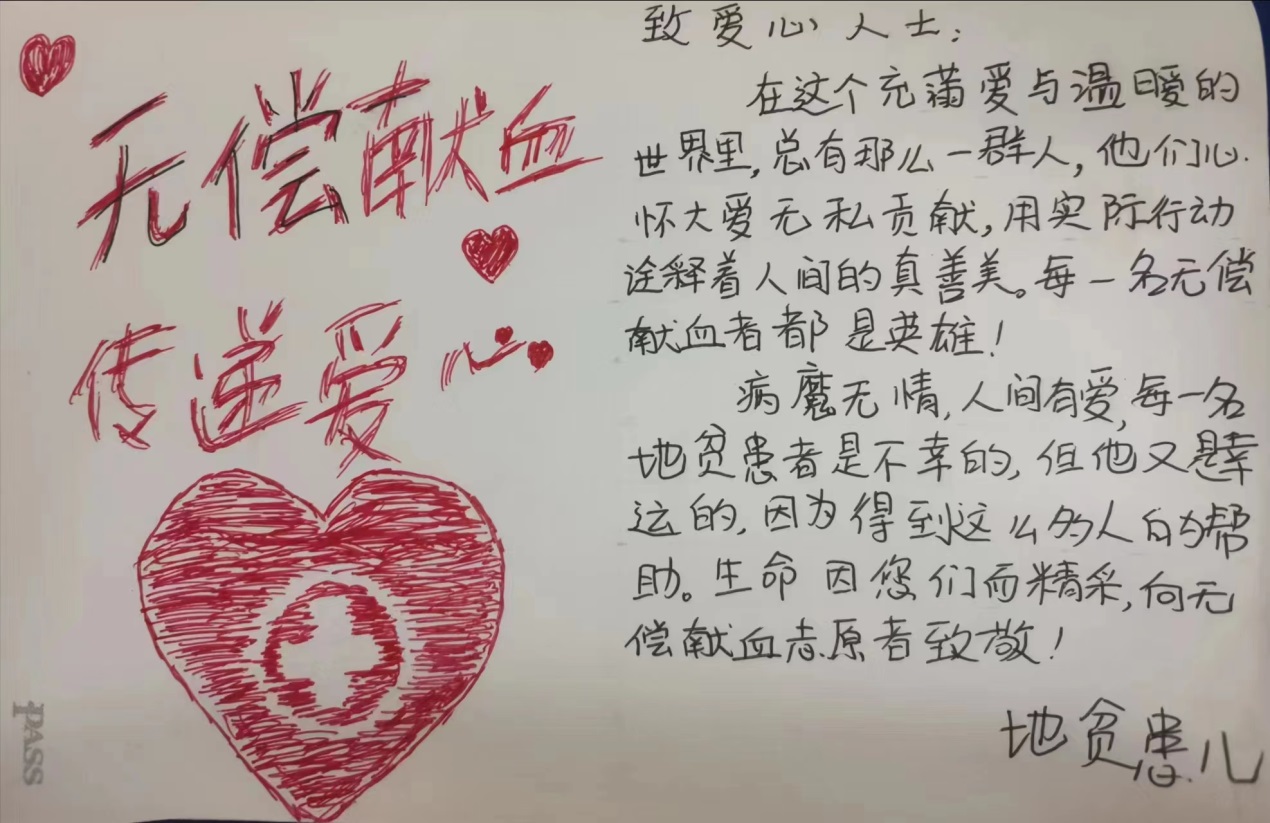 无偿献血
传递爱心
致爱心人士：
在这个充满爱与温暖的
世界里，总有那么一群人，他们心
怀大爱无私贡献，用实际行动
诠释着人间的真善美。每一名无偿
献血者都是英雄！
病魔无情，人间有爱，每一名
地贫患者是不幸的，但他又是幸
运的，因为得到这么多人的帮
助。生命因您们而精采，向无
偿献血志原者致敬！
地贫患儿
PASS